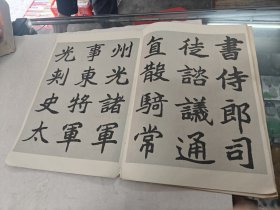 書侍郎司
徒諮議通
直散騎常
州光諸軍
事東將軍
光刺史太